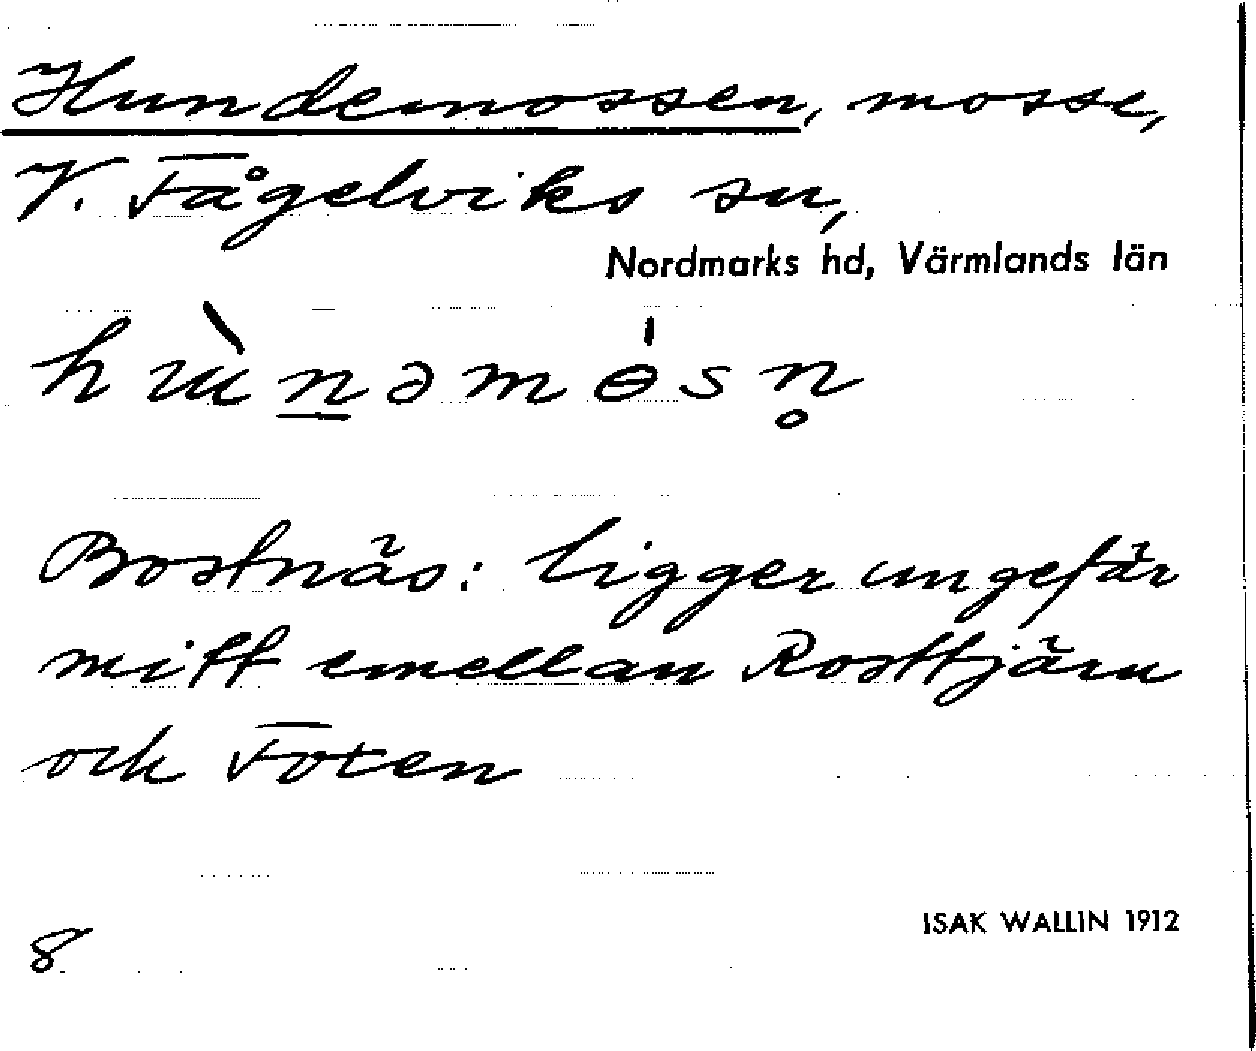 Hundemossen, mosse,
V. Fågelviks sn,
Nordmarks hd, Värmlands län
Bostnäs: ligger ungefär
mitt emellan Rosttjärn
och Foten
ISAK WALLIN 1912
8